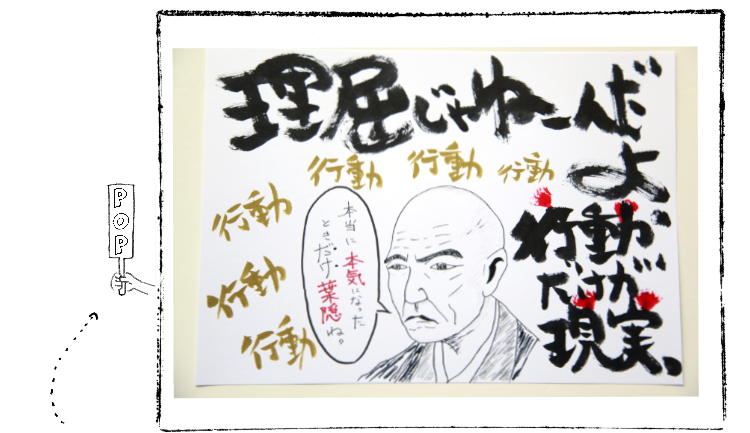 理屈じゃねーんだよ
行動
行動
行動
行動
行動
行動
行動だけが
現実。
本当に本気になった
ときだけ、葉隠ね。
POP